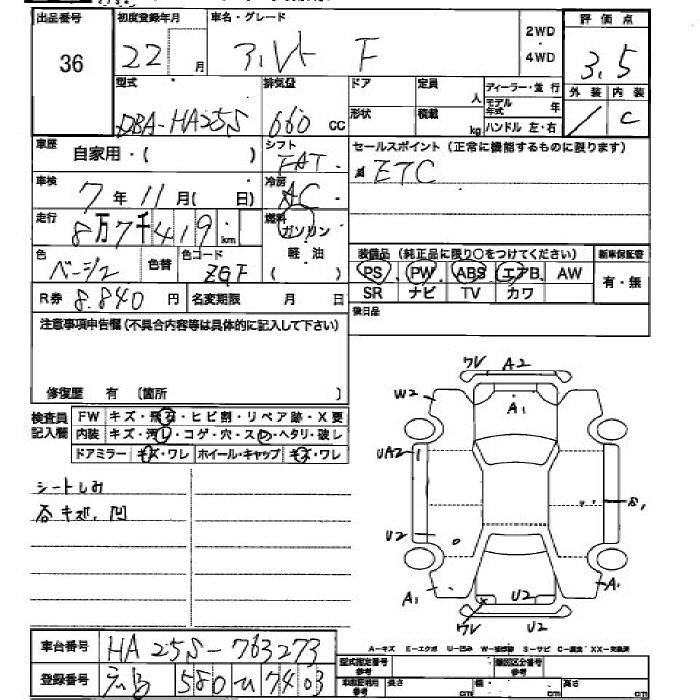 出品番号 初度登録年月 車名・グレード 評価点
36 22 月 アルト F 2WD ・ 4WD 3.5
外装 内装
/ C
型式 排気量 ドア 定員 人 ディーラー・並行
DBA-HA25S 660 cc 形状 積載 kg モデル年式 年
ハンドル 左・右
車歴 自家用・( ) シフト FAT セールスポイント (正常に機能するものに限ります)
車検 7年11月( 日) 冷房 AC ETC
走行 8万7千419 km 燃料 ガソリン
色 ベージュ 色替 色コード ZGF 軽油 ( ) 装備品 (純正品に限り○をつけてください) 新車保証書
PS PW ABS エアB AW 有・無
R券 8.840 円 名変期限 月 日 SR ナビ TV カワ
注意事項申告欄 (不具合内容等は具体的に記入して下さい) 後日品
修復歴 有 〔箇所 〕
検査員記入欄 FW キズ・飛石・ヒビ割・リペア跡・X要
内装 キズ・汚レ・コゲ・穴・スレ・ヘタリ・破レ
ドアミラー キズ・ワレ ホイール・キャップ キズ・ワレ
シートしみ
各キズ、凹
ワレ A2
W2 A1
UA2
U2
A1 U2 A1
ワレ U2
車台番号 HA25S-763273
A-キズ E-エクボ U-凹み
登録番号 580 ひ 7403
型式指定番号 類別区分番号
長さ cm 幅 cm 高さ cm